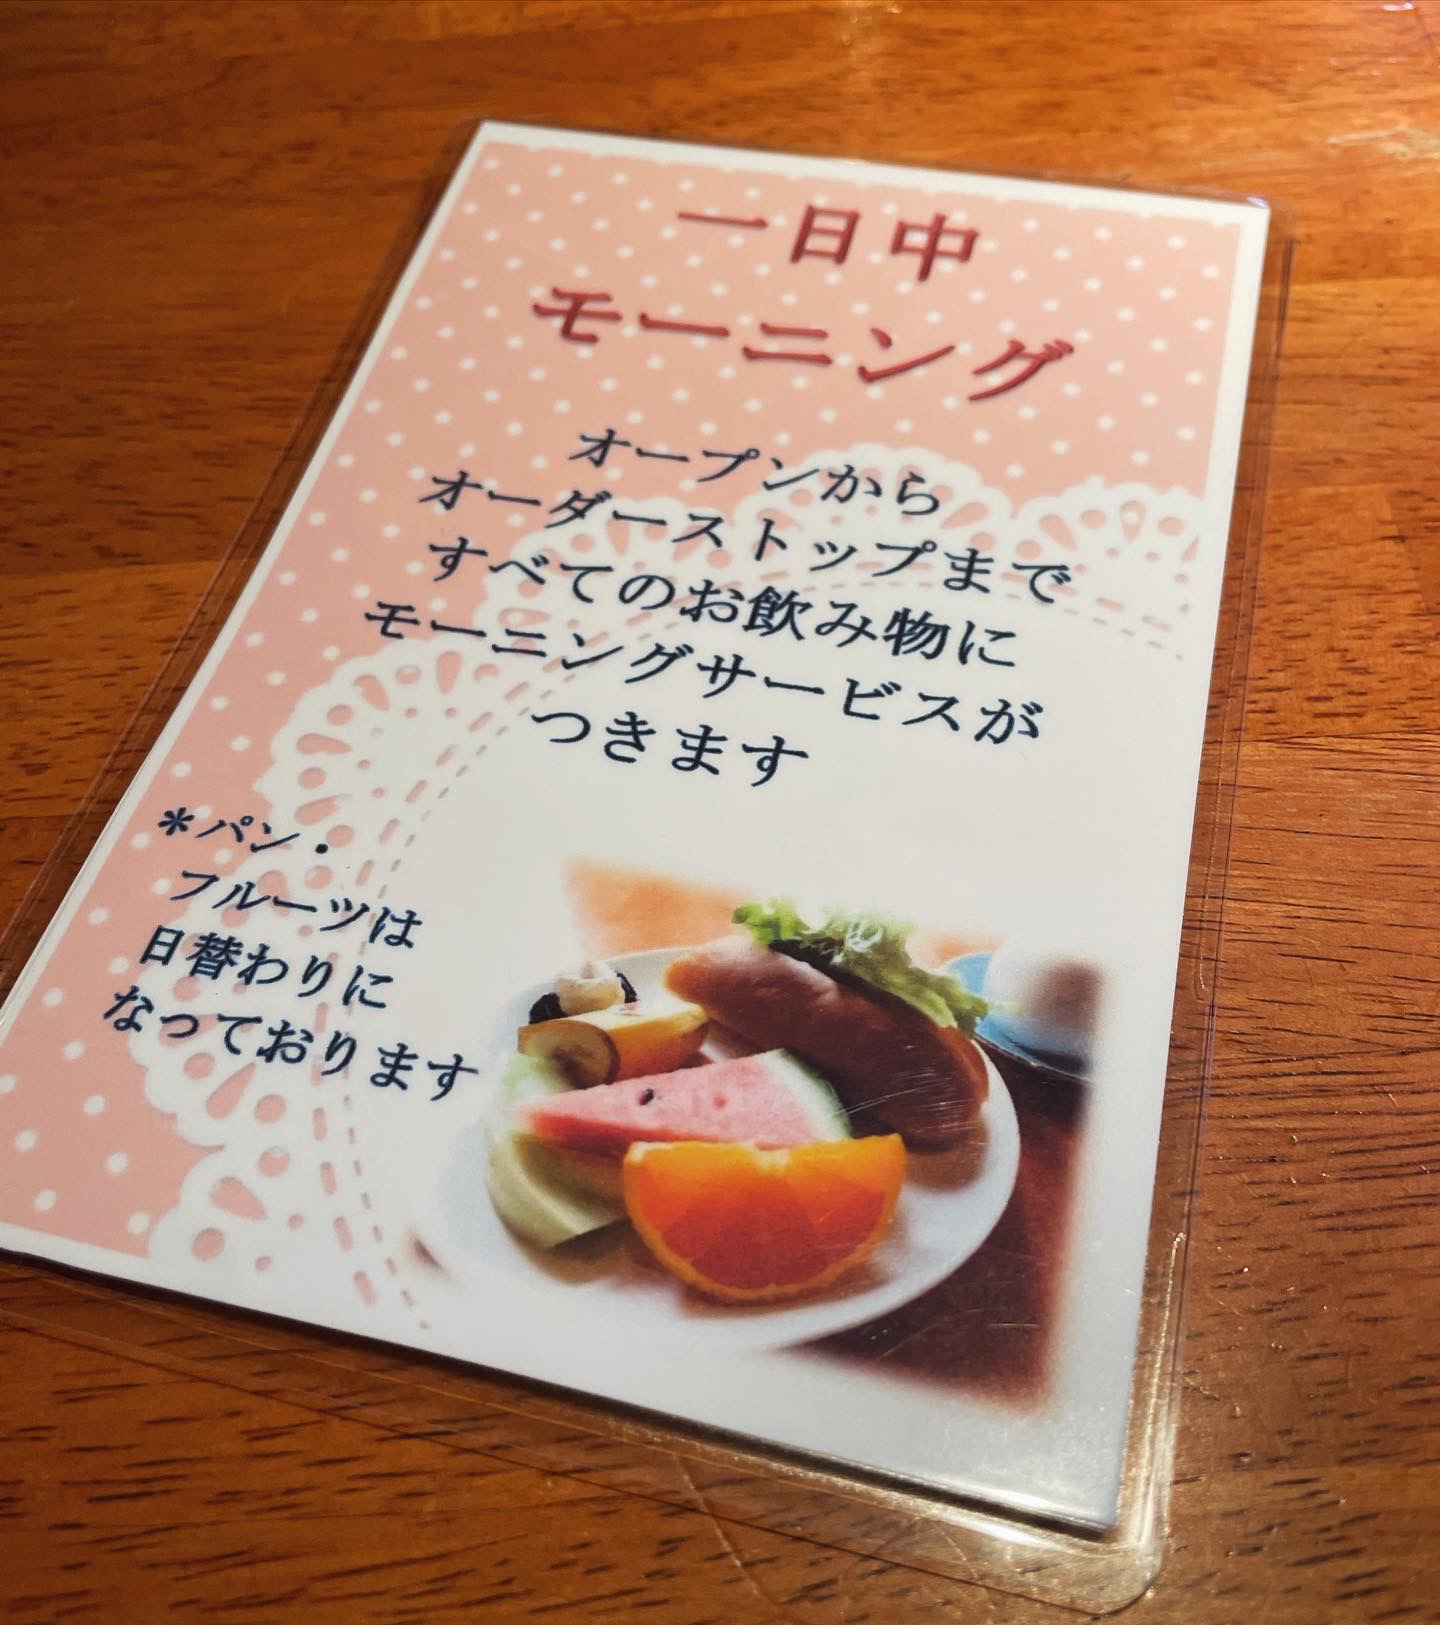 一日中
モーニング
オープンから
オーダーストップまで
すべてのお飲み物に
モーニングサービスが
つきます
＊パン・
フルーツは
日替わりに
なっております